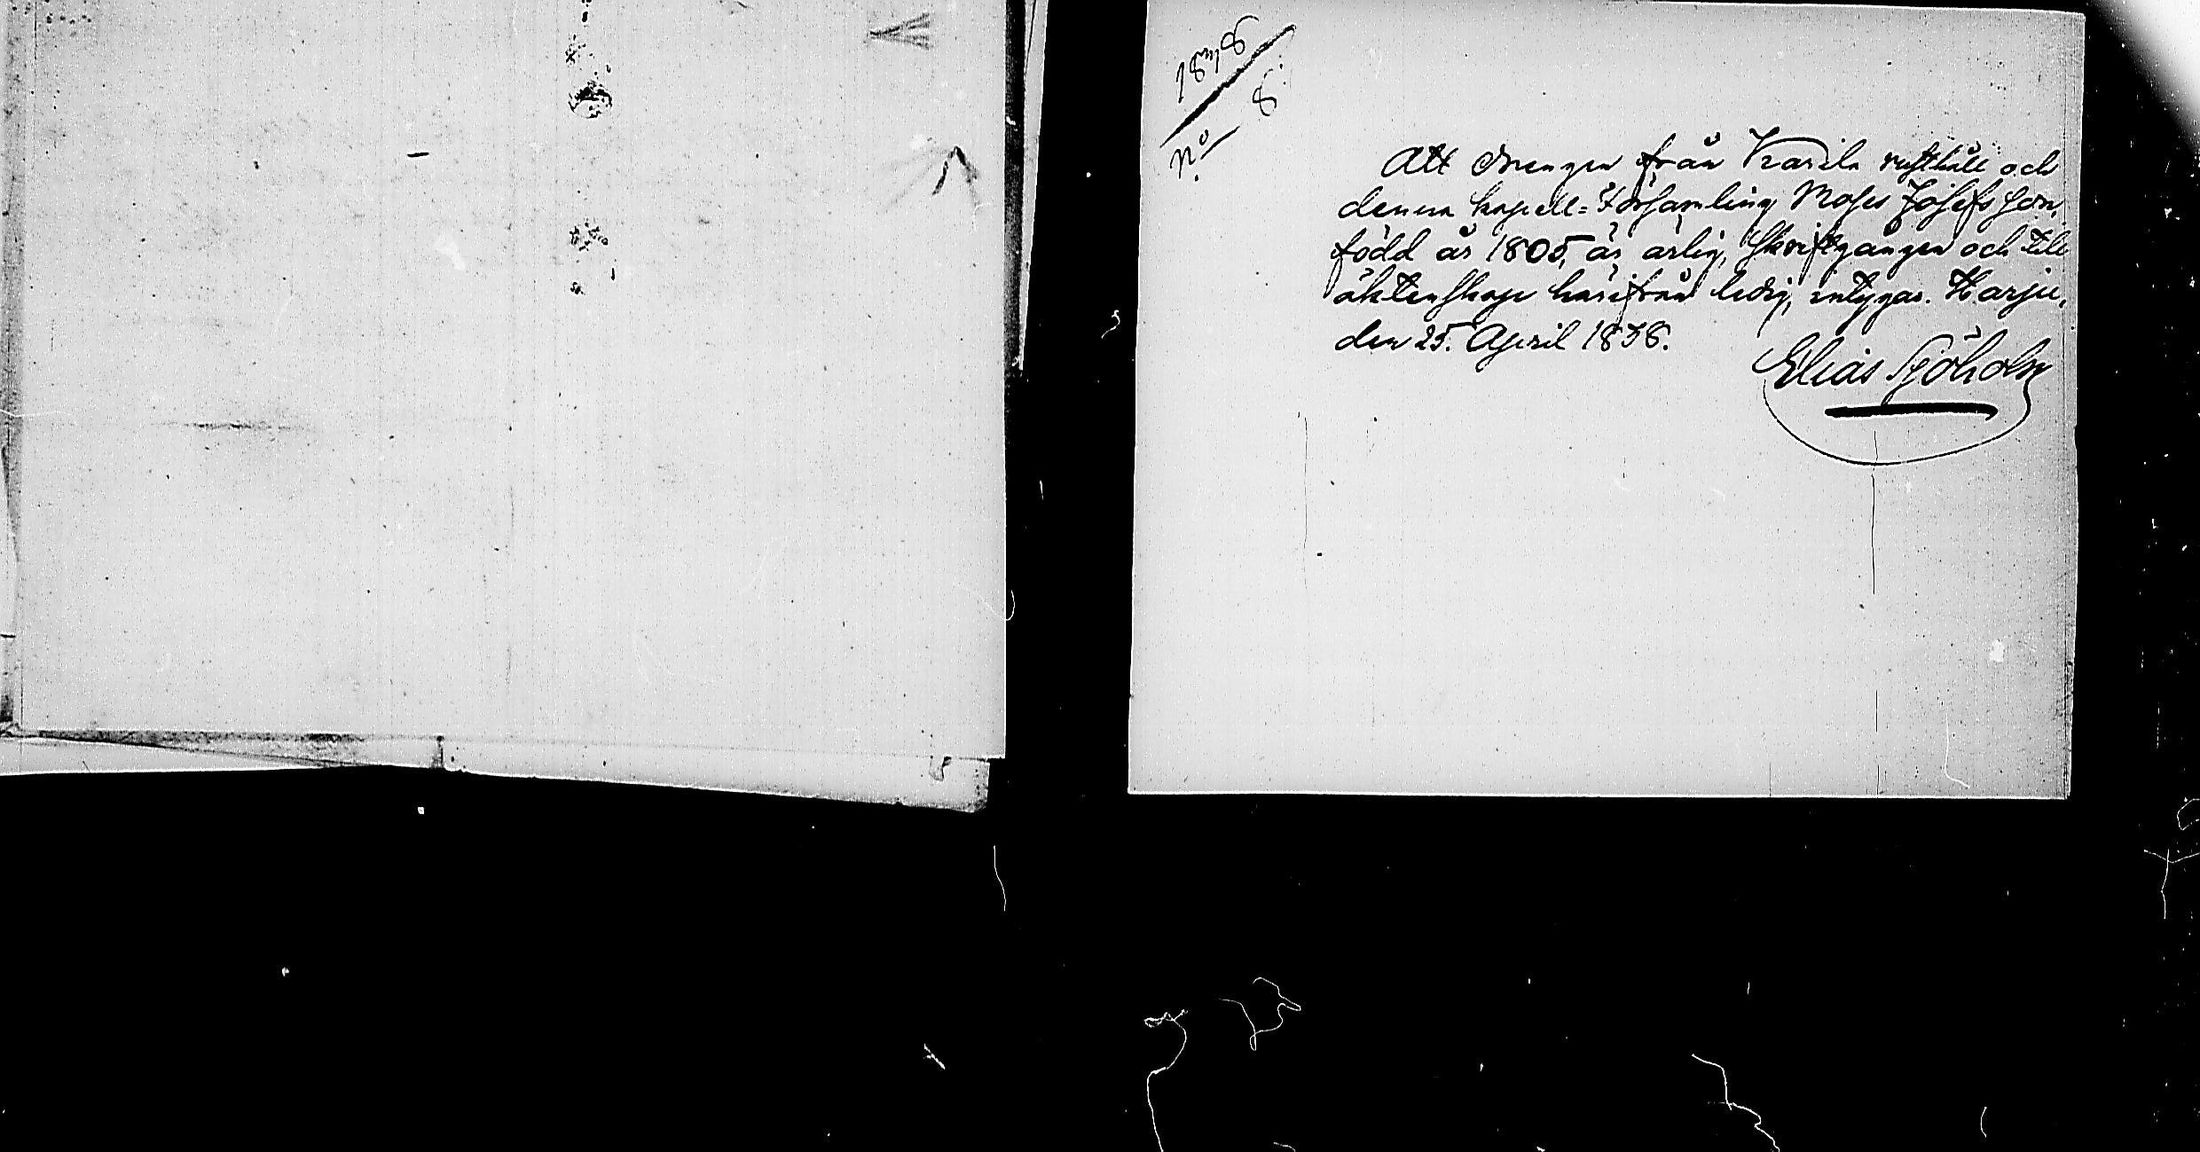 1838
No 8.
Att drengen från Karila rusthåll och
denna kapell=församling Moses Josefsson,
född år 1805, är ärlig, skriftgången och till
äktenskap härifrån ledig, intygas. Harju,
den 25. April 1838.
Elias Sjöholm